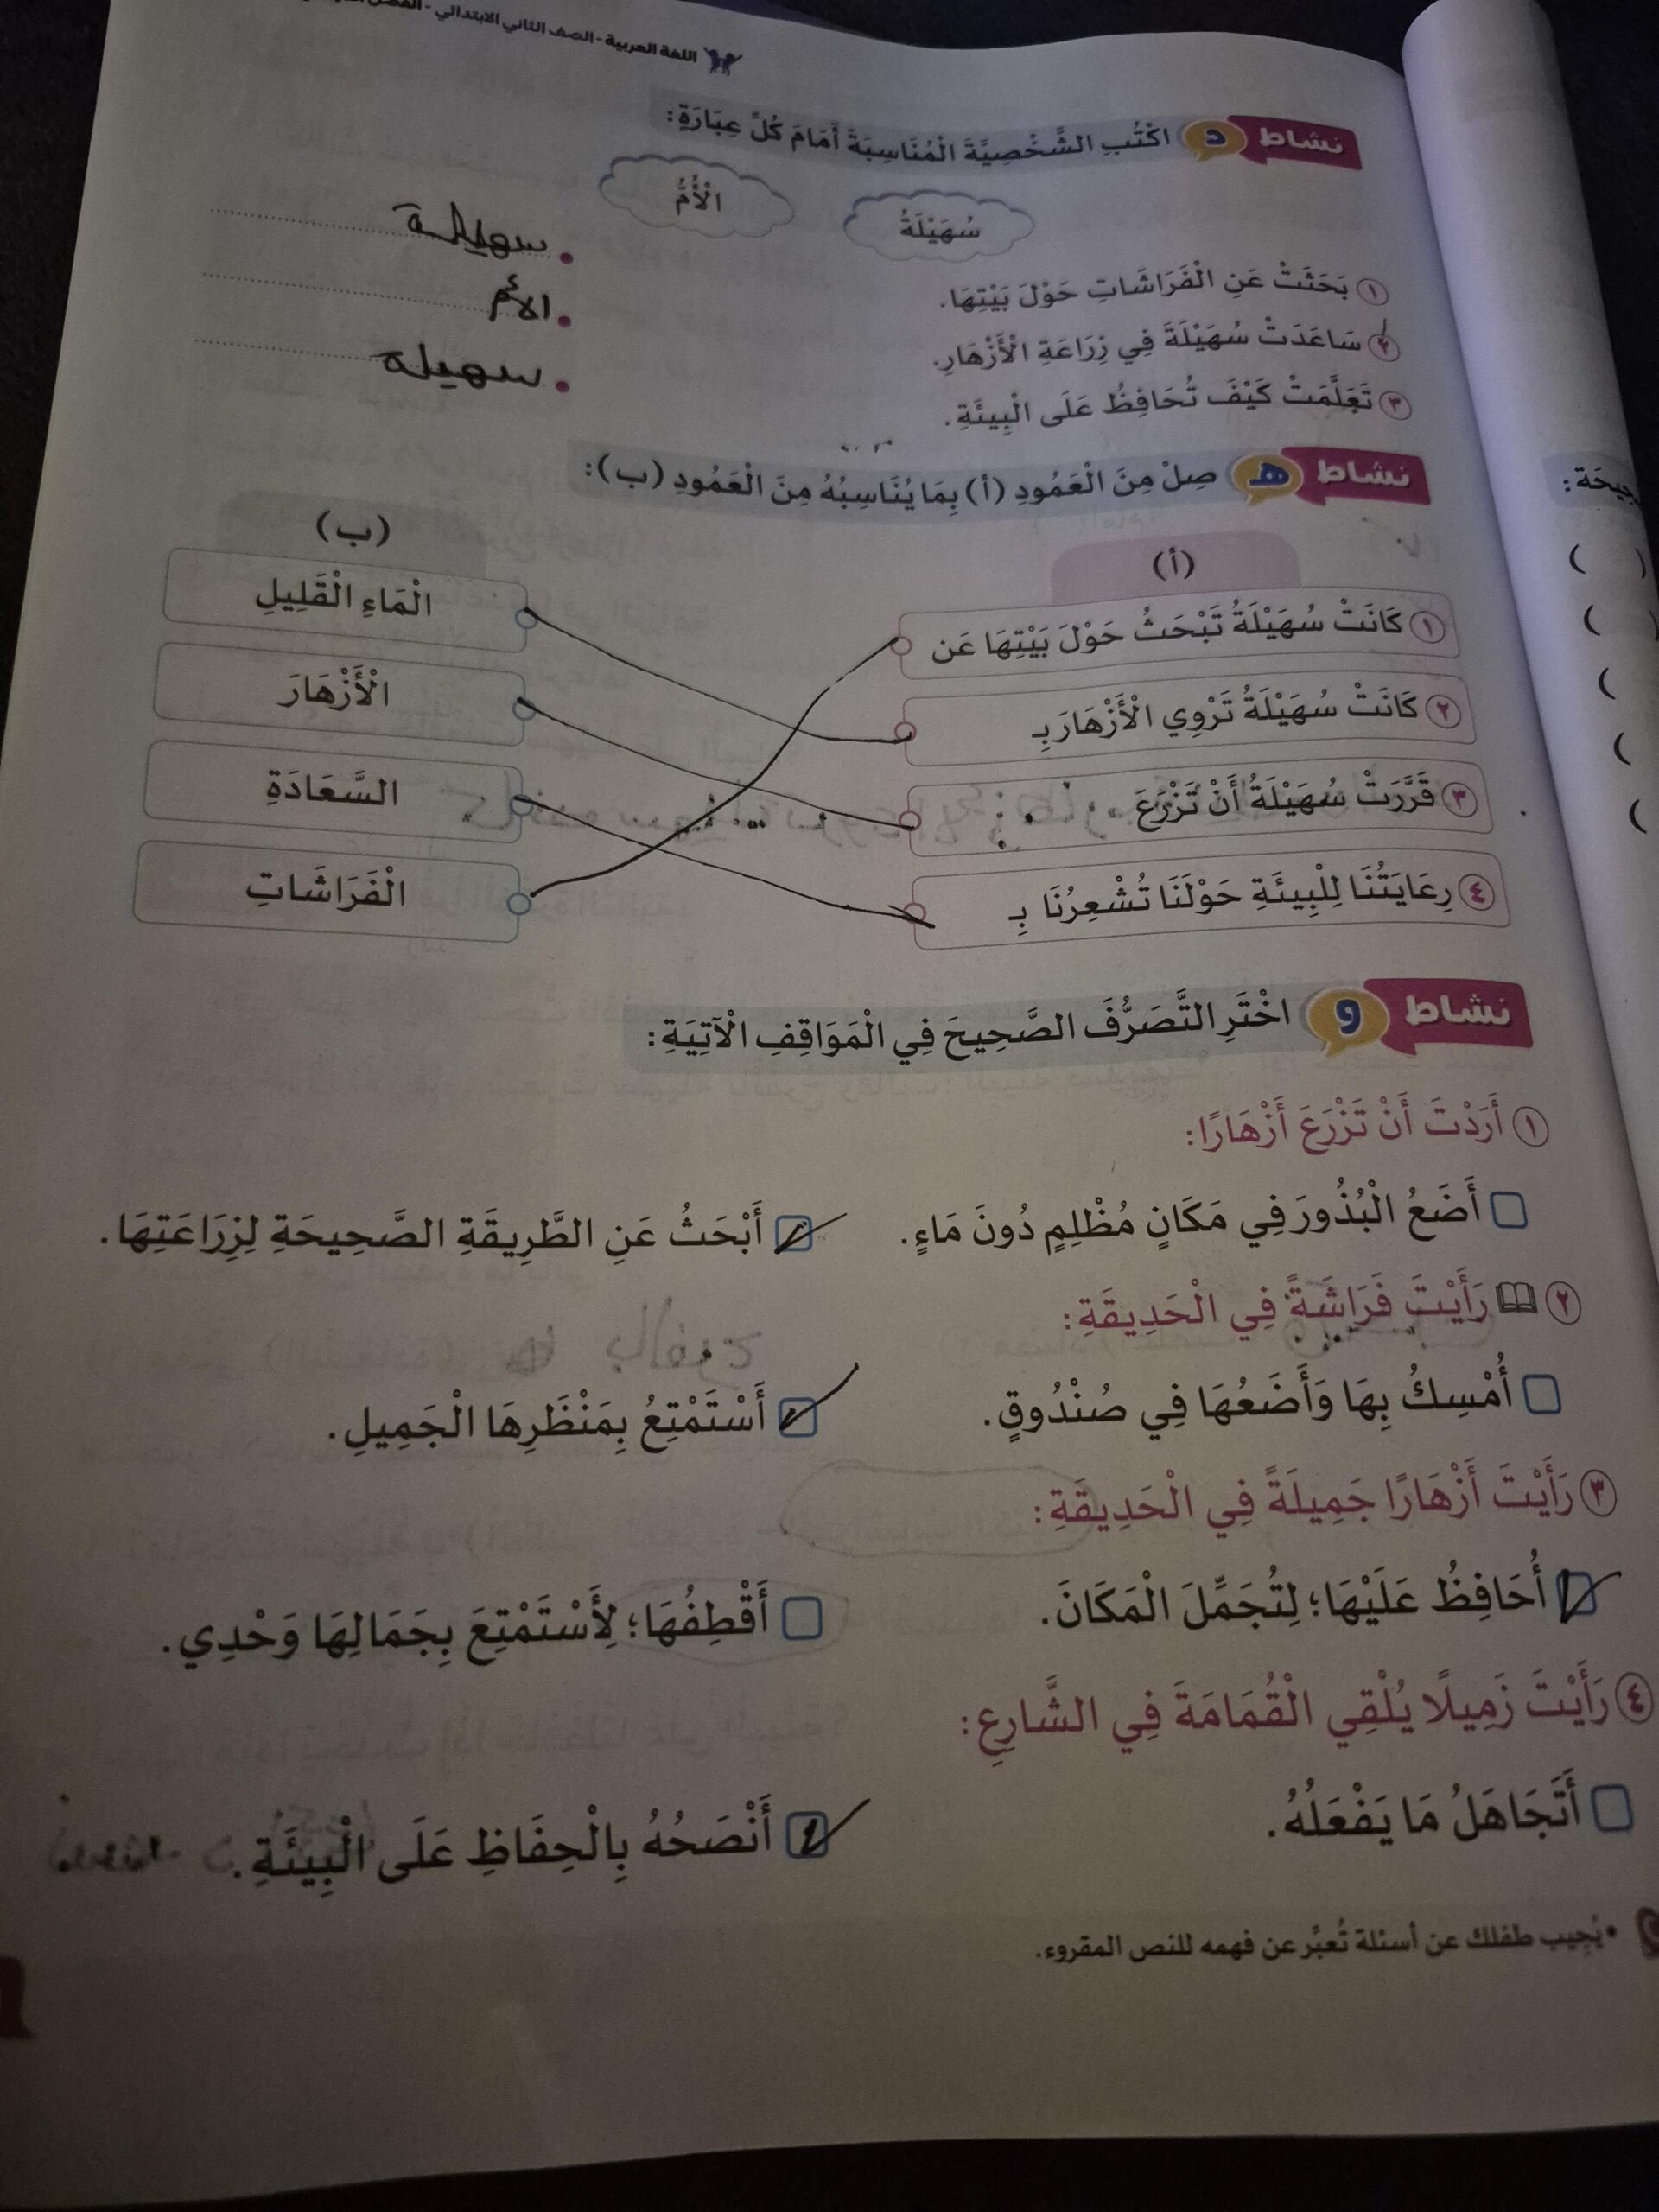 اللغة العربية - الصف الثاني الابتدائي -
نشاط د اكْتُبِ الشَّخْصِيَّةَ الْمُنَاسِبَةَ أَمَامَ كُلِّ عِبَارَةٍ:
سُهَيْلَةُ الْأُمُّ
١ بَحَثَتْ عَنِ الْفَرَاشَاتِ حَوْلَ بَيْتِهَا. سهيلة
٢ سَاعَدَتْ سُهَيْلَةَ فِي زِرَاعَةِ الْأَزْهَارِ. الأم
٣ تَعَلَّمَتْ كَيْفَ تُحَافِظُ عَلَى الْبِيئَةِ. سهيله
نشاط هـ صِلْ مِنَ الْعَمُودِ (أ) بِمَا يُنَاسِبُهُ مِنَ الْعَمُودِ (ب):
(أ) (ب)
١ كَانَتْ سُهَيْلَةُ تَبْحَثُ حَوْلَ بَيْتِهَا عَن الْمَاءِ الْقَلِيلِ
٢ كَانَتْ سُهَيْلَةُ تَرْوِي الْأَزْهَارَ بِـ الْأَزْهَارَ
٣ قَرَّرَتْ سُهَيْلَةُ أَنْ تَزْرَعَ السَّعَادَةِ
٤ رِعَايَتُنَا لِلْبِيئَةِ حَوْلَنَا تُشْعِرُنَا بِـ الْفَرَاشَاتِ
نشاط و اخْتَرِ التَّصَرُّفَ الصَّحِيحَ فِي الْمَوَاقِفِ الْآتِيَةِ:
١ أَرَدْتَ أَنْ تَزْرَعَ أَزْهَارًا:
أَضَعُ الْبُذُورَ فِي مَكَانٍ مُظْلِمٍ دُونَ مَاءٍ. أَبْحَثُ عَنِ الطَّرِيقَةِ الصَّحِيحَةِ لِزِرَاعَتِهَا.
٢ رَأَيْتَ فَرَاشَةً فِي الْحَدِيقَةِ:
أُمْسِكُ بِهَا وَأَضَعُهَا فِي صُنْدُوقٍ. أَسْتَمْتِعُ بِمَنْظَرِهَا الْجَمِيلِ.
٣ رَأَيْتَ أَزْهَارًا جَمِيلَةً فِي الْحَدِيقَةِ:
أُحَافِظُ عَلَيْهَا؛ لِتُجَمِّلَ الْمَكَانَ. أَقْطِفُهَا؛ لِأَسْتَمْتِعَ بِجَمَالِهَا وَحْدِي.
٤ رَأَيْتَ زَمِيلًا يُلْقِي الْقُمَامَةَ فِي الشَّارِعِ:
أَتَجَاهَلُ مَا يَفْعَلُهُ. أَنْصَحُهُ بِالْحِفَاظِ عَلَى الْبِيئَةِ.
• يُجِيب طفلك عن أسئلة تُعبِّر عن فهمه للنص المقروء.